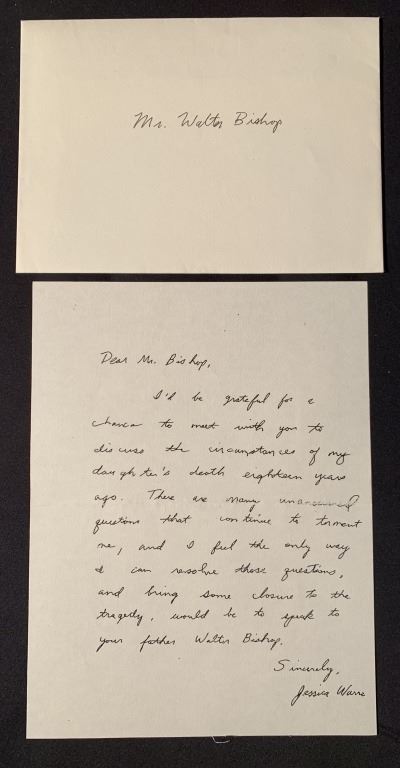 Mr. Walter Bishop
Dear Mr. Bishop,
I'd be grateful for a
chance to meet with you to
discuss the circumstances of my
daughter's death eighteen years
ago. There are many unanswered
questions that continue to torment
me, and I feel the only way
I can resolve those questions,
and bring some closure to the
tragedy, would be to speak to
your father Walter Bishop.
Sincerely,
Jessica